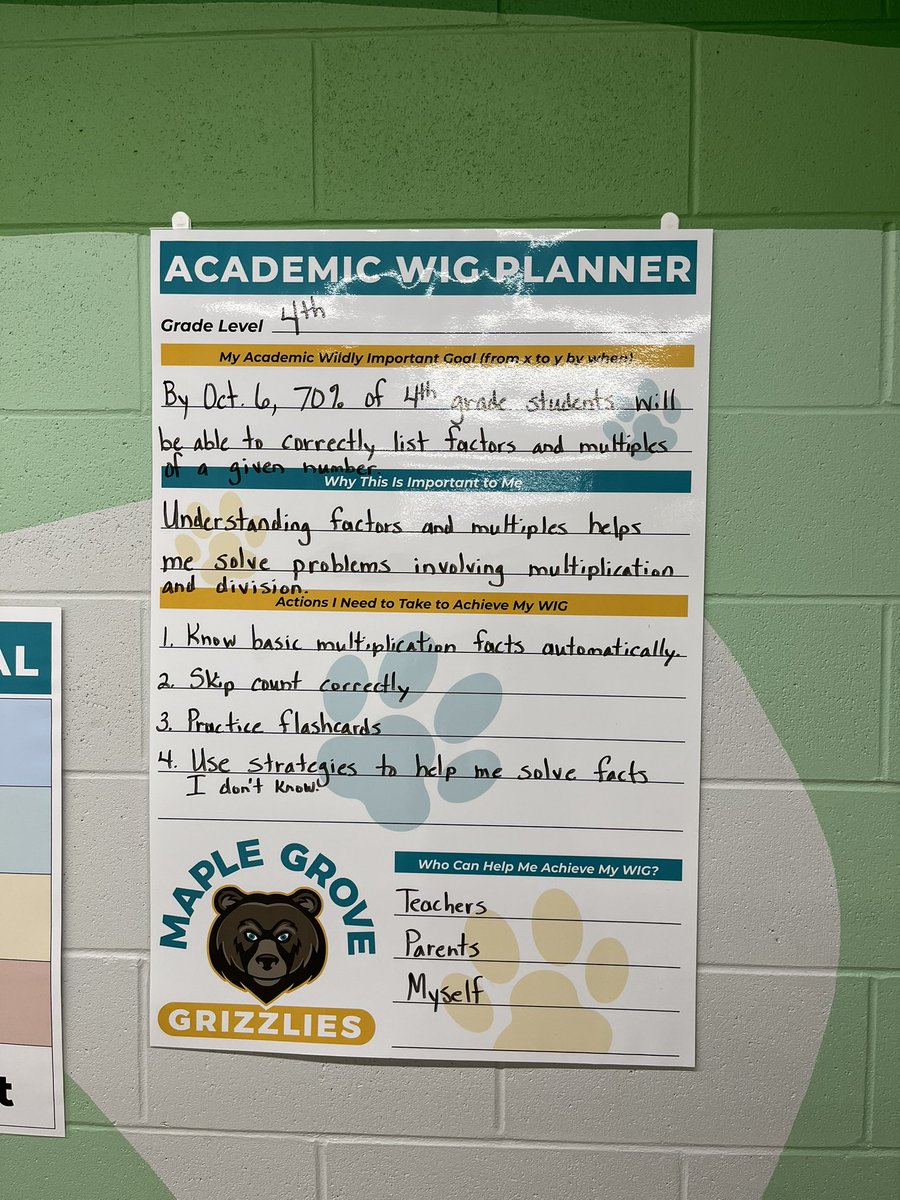 ACADEMIC WIG PLANNER
Grade Level 4th
My Academic Wildly Important Goal (from x to y by when)
By Oct. 6, 70% of 4th grade students will
be able to correctly list factors and multiples
of a given number.
Why This Is Important to Me
Understanding factors and multiples helps
me solve problems involving multiplication
and division.
Actions I Need to Take to Achieve My WIG
1. Know basic multiplication facts automatically.
2. Skip count correctly
3. Practice flashcards
4. Use strategies to help me solve facts
I don't know.
MAPLE GROVE
GRIZZLIES
Who Can Help Me Achieve My WIG?
Teachers
Parents
Myself
AL
t